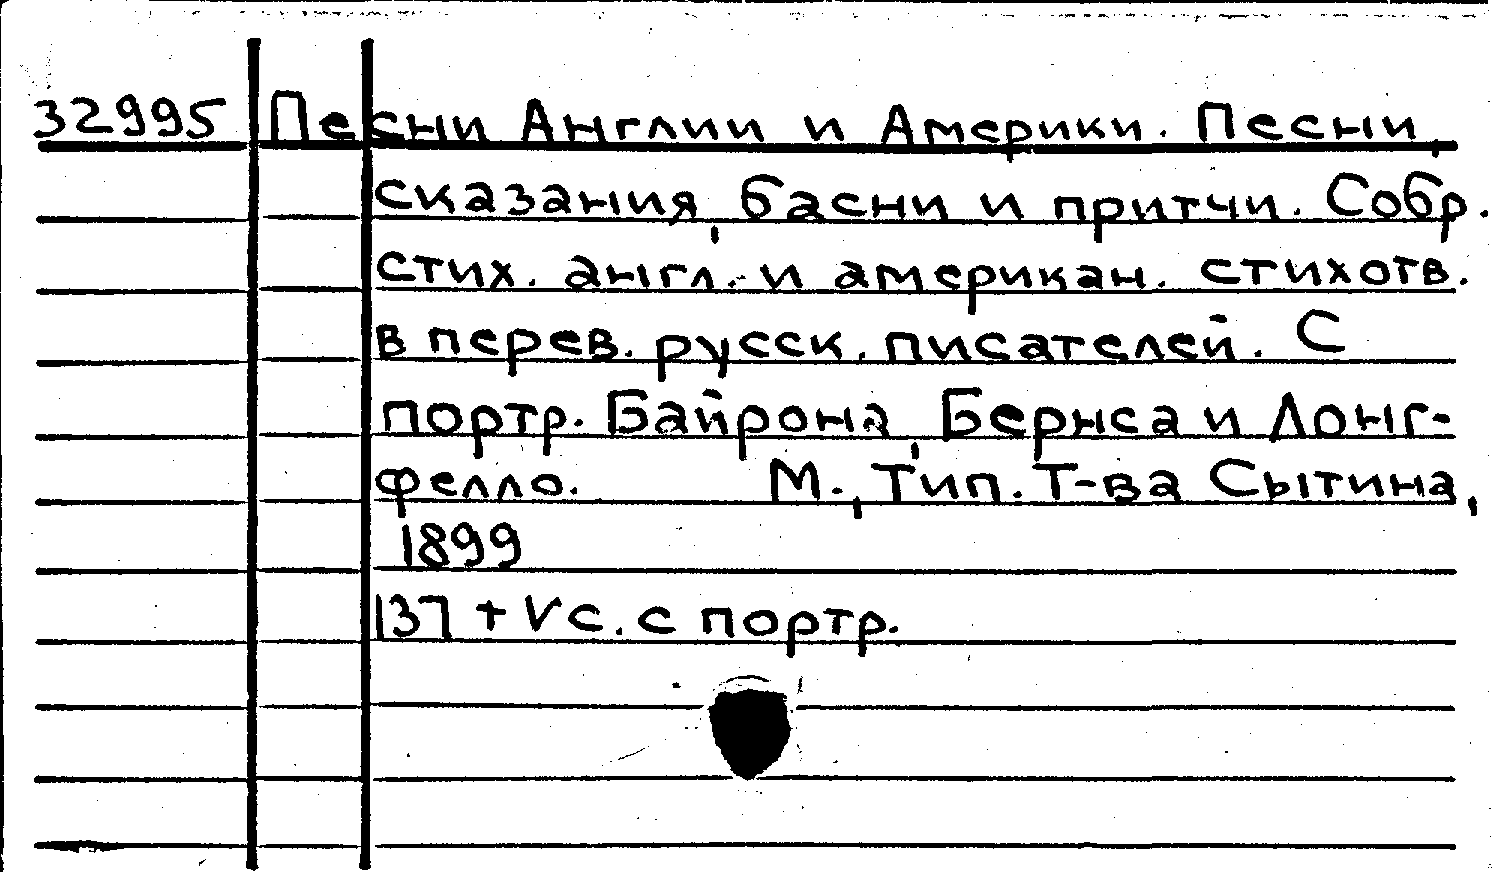 32995 Песни Англии и Америки. Песни,
сказания, басни и притчи. Собр.
стих. англ. и американ. стихотв.
в перев. русск. писателей. С
портр. Байрона, Бернса и Лонг-
фелло. М., Тип. Т-ва Сытина,
1899
137 + V с. с портр.